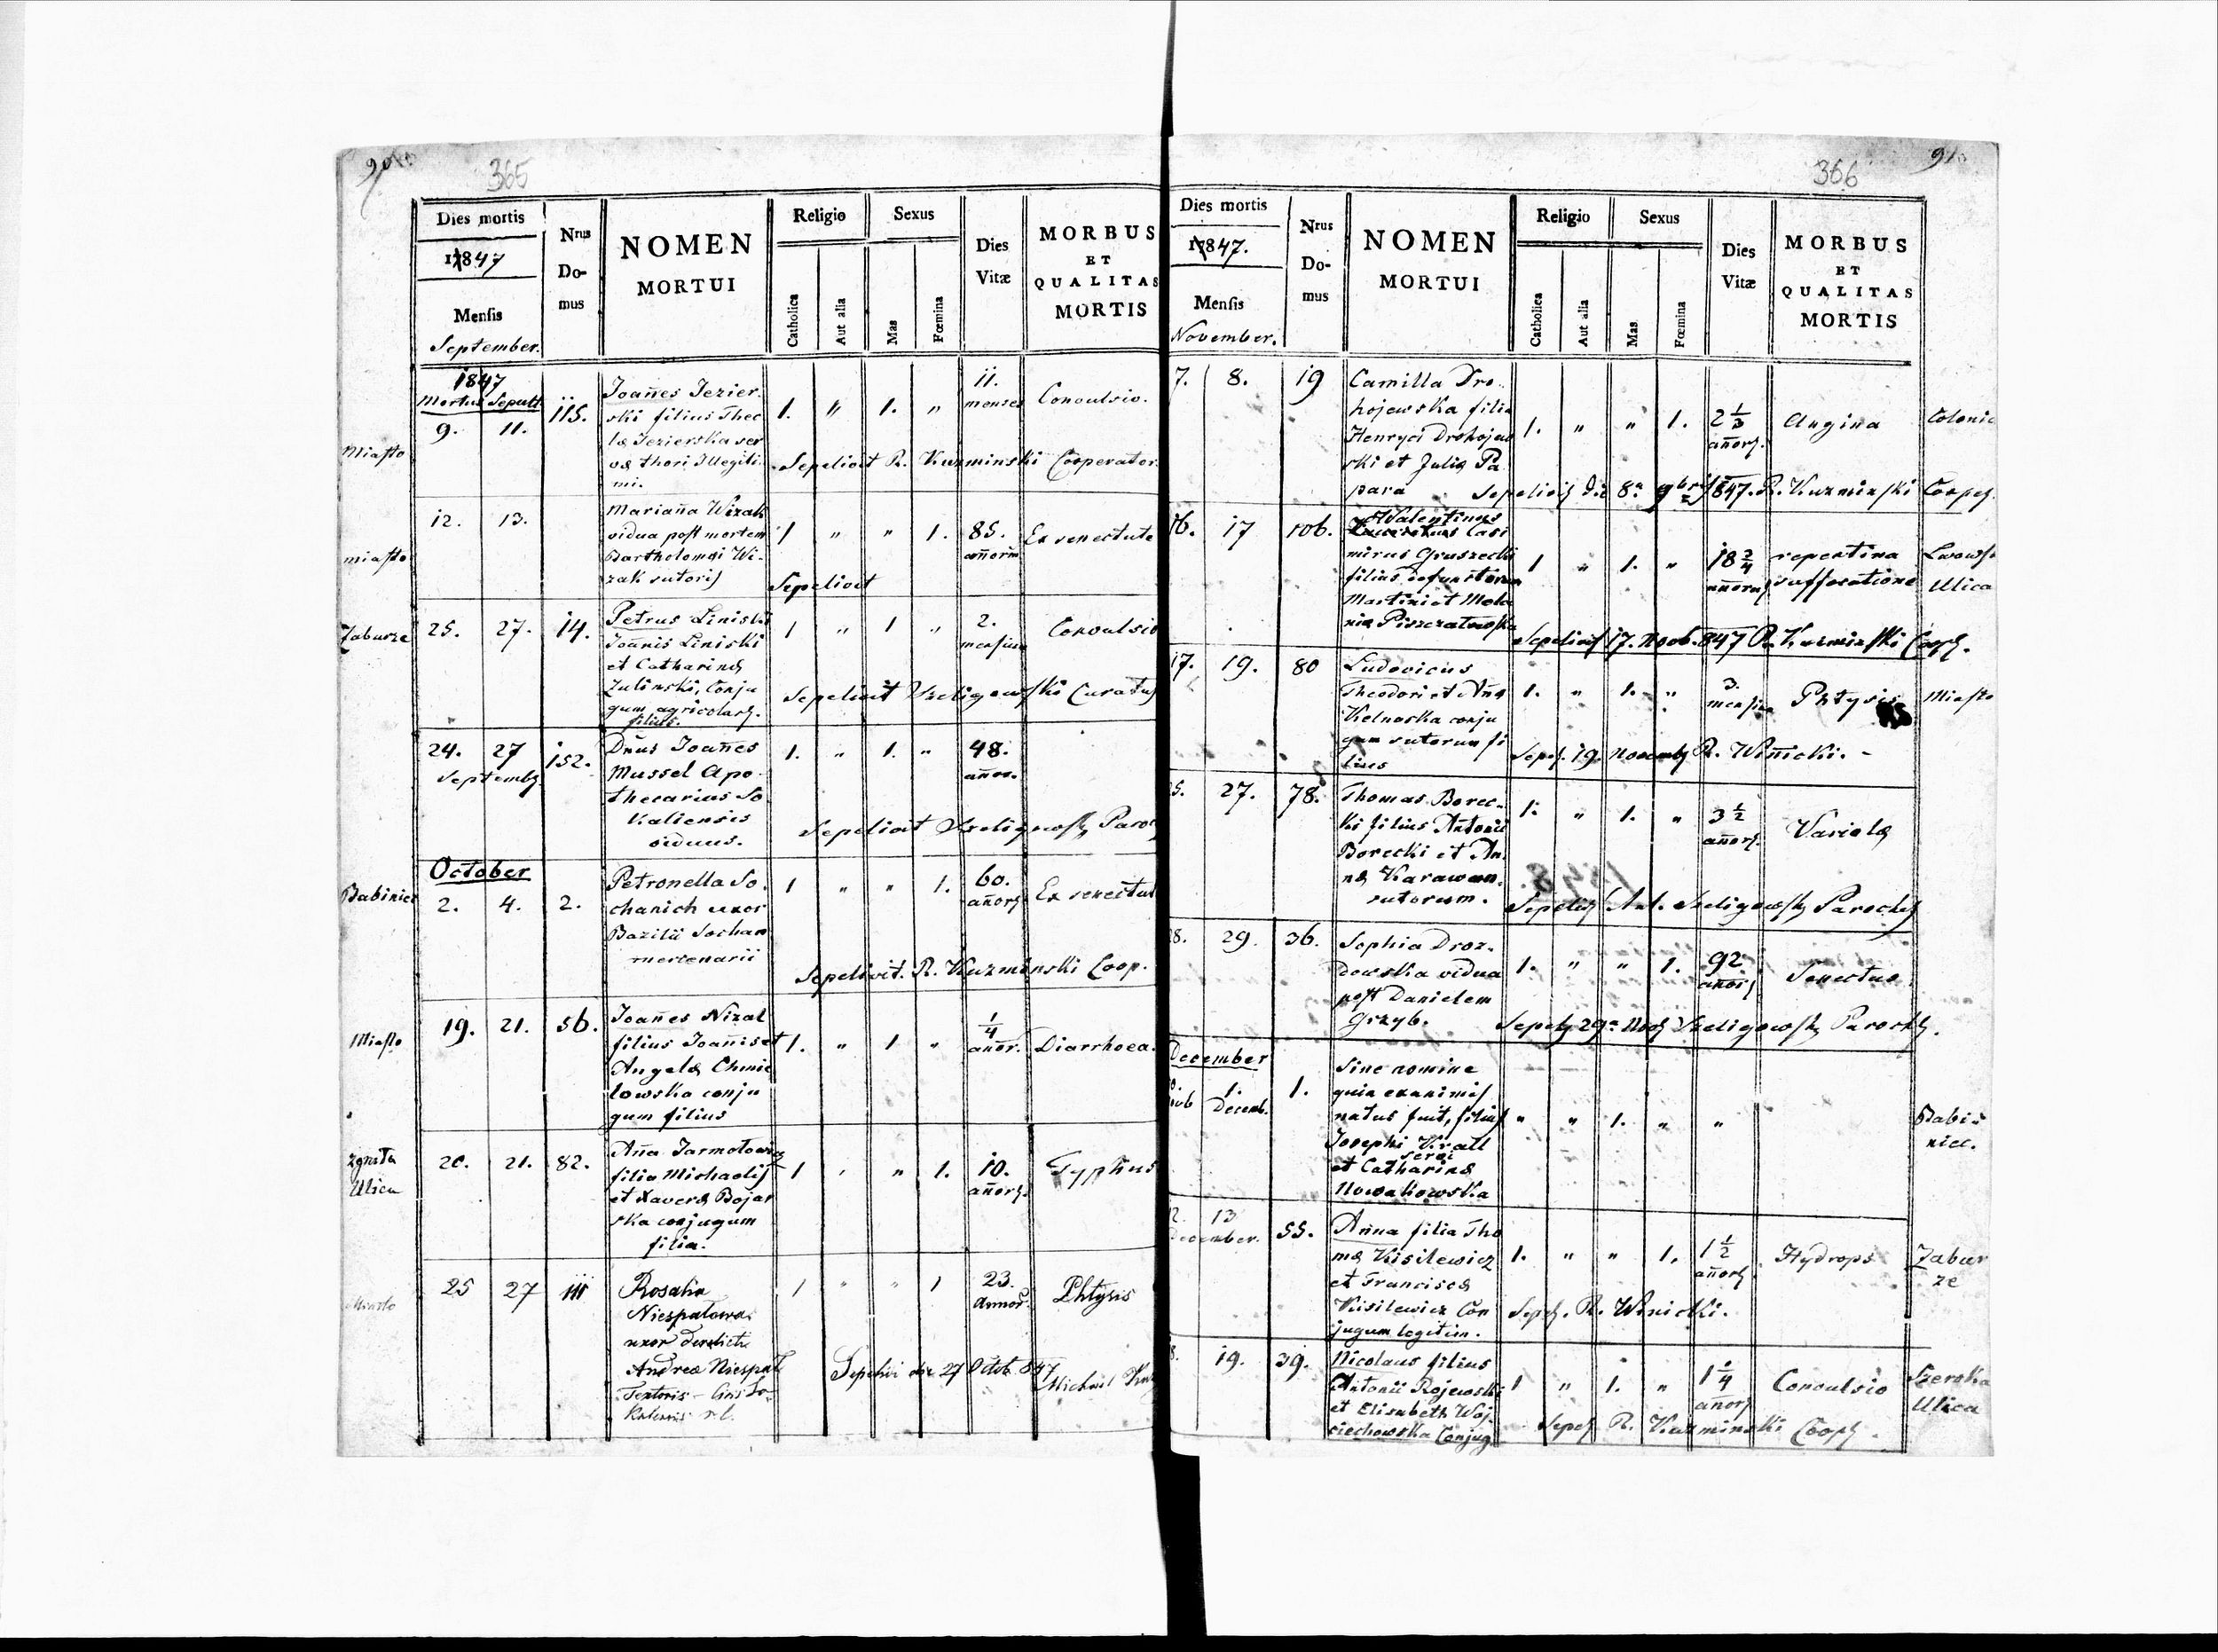 365
Dies mortis
1847
Mensis
September.
Nrus
Do-
mus
NOMEN
MORTUI
Religio
Catholica
Aut alia
Sexus
Mas
Fœmina
Dies
Vitæ
MORBUS
ET
QUALITAS
MORTIS
Miasto
1847
Mortus Sepult
9. 11.
115.
Joañes Jezier
ski filius Thec
læ Jezierska ser
væ thori Illegiti
mi.
1. " 1. "
11.
menses
Convulsio.
Sepelivit R. Kuzminski Cooperator.
miasto
12. 13.
Mariaña Wizak
vidua post mortem
Bartholomæi Wi-
zak sutoris
1 " " 1.
85.
añorm
Ex senectute
Sepelivit
Zaburze
25. 27. 14.
Petrus Liniski
Joañis Liniski
et Catharinæ
Zulinski, Conju
gum agricolar.
filius.
1 " 1 "
2.
mensium
Convulsio
Sepelivit Szeligowski Curatus
24. 27
Septemb.
152.
Dñus Joañes
Mussel Apo-
thecarius So
kaliensis
viduus.
1. " 1. "
48.
añor.
Sepelivit Szeligowski Paroc
Babiniec
October
2. 4. 2.
Petronella So.
chanich uxor
Bazilii Sochan
mercenarii
1 " " 1.
60.
añor
Ex senectut
Sepelivit. R. Kuzminski Coop.
Miasto
19. 21. 56.
Joañes Nizal
filius Joañis et
Angelæ Chmie
lowska conju
gum filius
1. " 1 "
1/4
añor.
Diarrhoea.
Zgnita
Ulica
20. 21. 82.
Aña Jarmolowicz
filia Michaelis
et Xaveræ Bojar
ska conjugum
filia.
1 " " 1.
10.
añor.
Typhus
Miasto
25 27 111
Rosalia
Niespalowa
uxor derelicta
Andreæ Niespal
Textoris
1 " " 1
23.
Annor.
Phtysis
Sepelivi die 27 Octob 847
Michael
366
Dies mortis
1847.
Mensis
November.
Nrus
Do-
mus
NOMEN
MORTUI
Religio
Catholica
Aut alia
Sexus
Mas
Fœmina
Dies
Vitæ
MORBUS
ET
QUALITAS
MORTIS
7. 8. 19
Camilla Dro.
hojewska filia
Henryci Drohojew
ski et Juliæ Pa
para
1. " " 1.
2 1/3
añor.
Angina
Colonia
Sepelivit die 8a 9bris 847. R. Kuzminski Coop.
16. 17 106.
Valentinus
Casi
mirus Gruszecki
filius defunctorum
Martini et Mela
niæ
1 " 1. "
18 2/4
añorum
repentina
suffocatione
Lwowsk
Ulica
Sepelivit 17. Novb. 847 R. Kuzminski Coop.
17. 19. 80
Ludovicus
Theodori et Añæ
Kelnoska conju
gum sutorum fi
lius
1. " 1. "
3.
mensium
Phtysis
Miasto
Sepel. 19. Novemb. R. Wiñicki. -
25. 27. 78.
Thomas Borec-
ki filius Antonii
Borecki et An.
næ Karawan.
sutorum.
1. " 1. "
3 1/2
añor.
Variolæ
Sepel. Ant. Szeligowski Parochus
28. 29. 36.
Sophia Droz-
dowska vidua
post Danielem
Grzyb.
1. " " 1.
92
añor
Senectus
Sepel. 29a Nov. Szeligowski Paroch.
December
1.
Decemb.
1.
Sine nomine
quia exanimis
natus fuit, filius
Josephi Krall
servi
et Catharinæ
Nowakowska
" " 1. " "
Babi-
niec.
12. 13
December.
55.
Anna filia Tho
mæ Kisilewicz
et Franciscæ
Kisilewicz Con
jugum legitim.
1. " " 1.
1 1/2
añor
Hydrops
Zabur
ze
Sepel. R. Winicki.
18. 19. 39.
Nicolaus filius
Antonii Rojewski
et Elisabeth Woj-
ciechowska Conjug
1 " 1. "
1 1/4
añor
Convulsio
Szeroka
Ulica
Sepel. R. Kuzminski Coop.